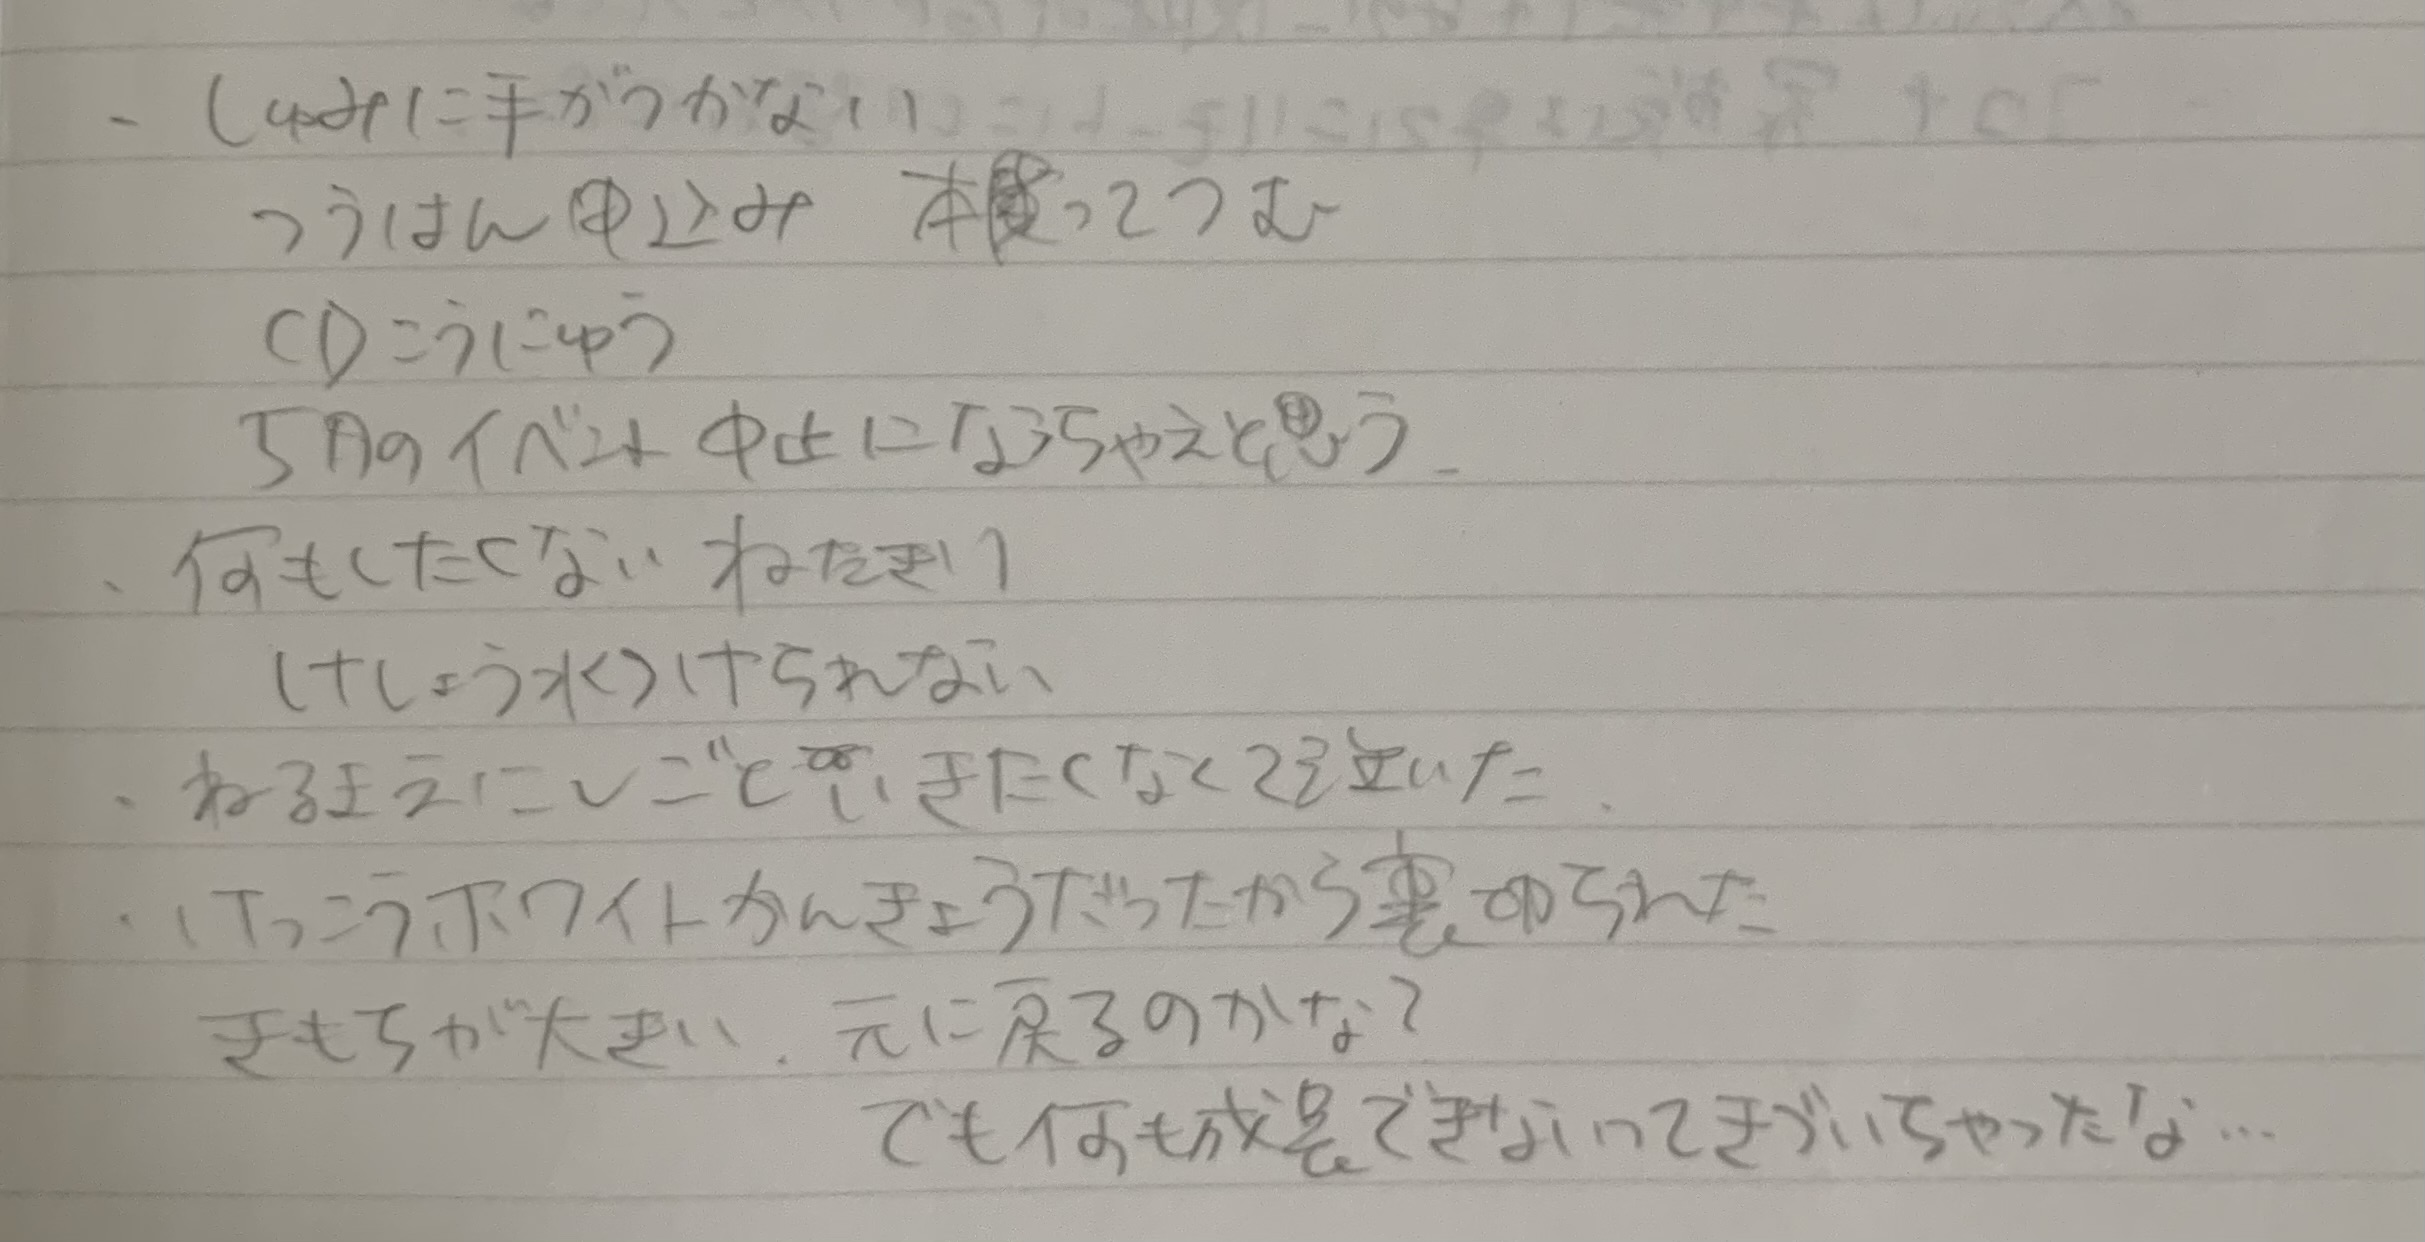 - しゅみに手がつかない
つうはん申込み 本買ってつむ
CDこうにゅう
5月のイベント中止になっちゃえと思う。
・何もしたくない ねたきり
けしょう水つけられない
・ねるまえにしごといきたくなくて泣いた。
・けっこうホワイトかんきょうだったから裏切られた
きもちが大きい. 元に戻るのかな?
でも何も成長できないってきづいちゃったな…